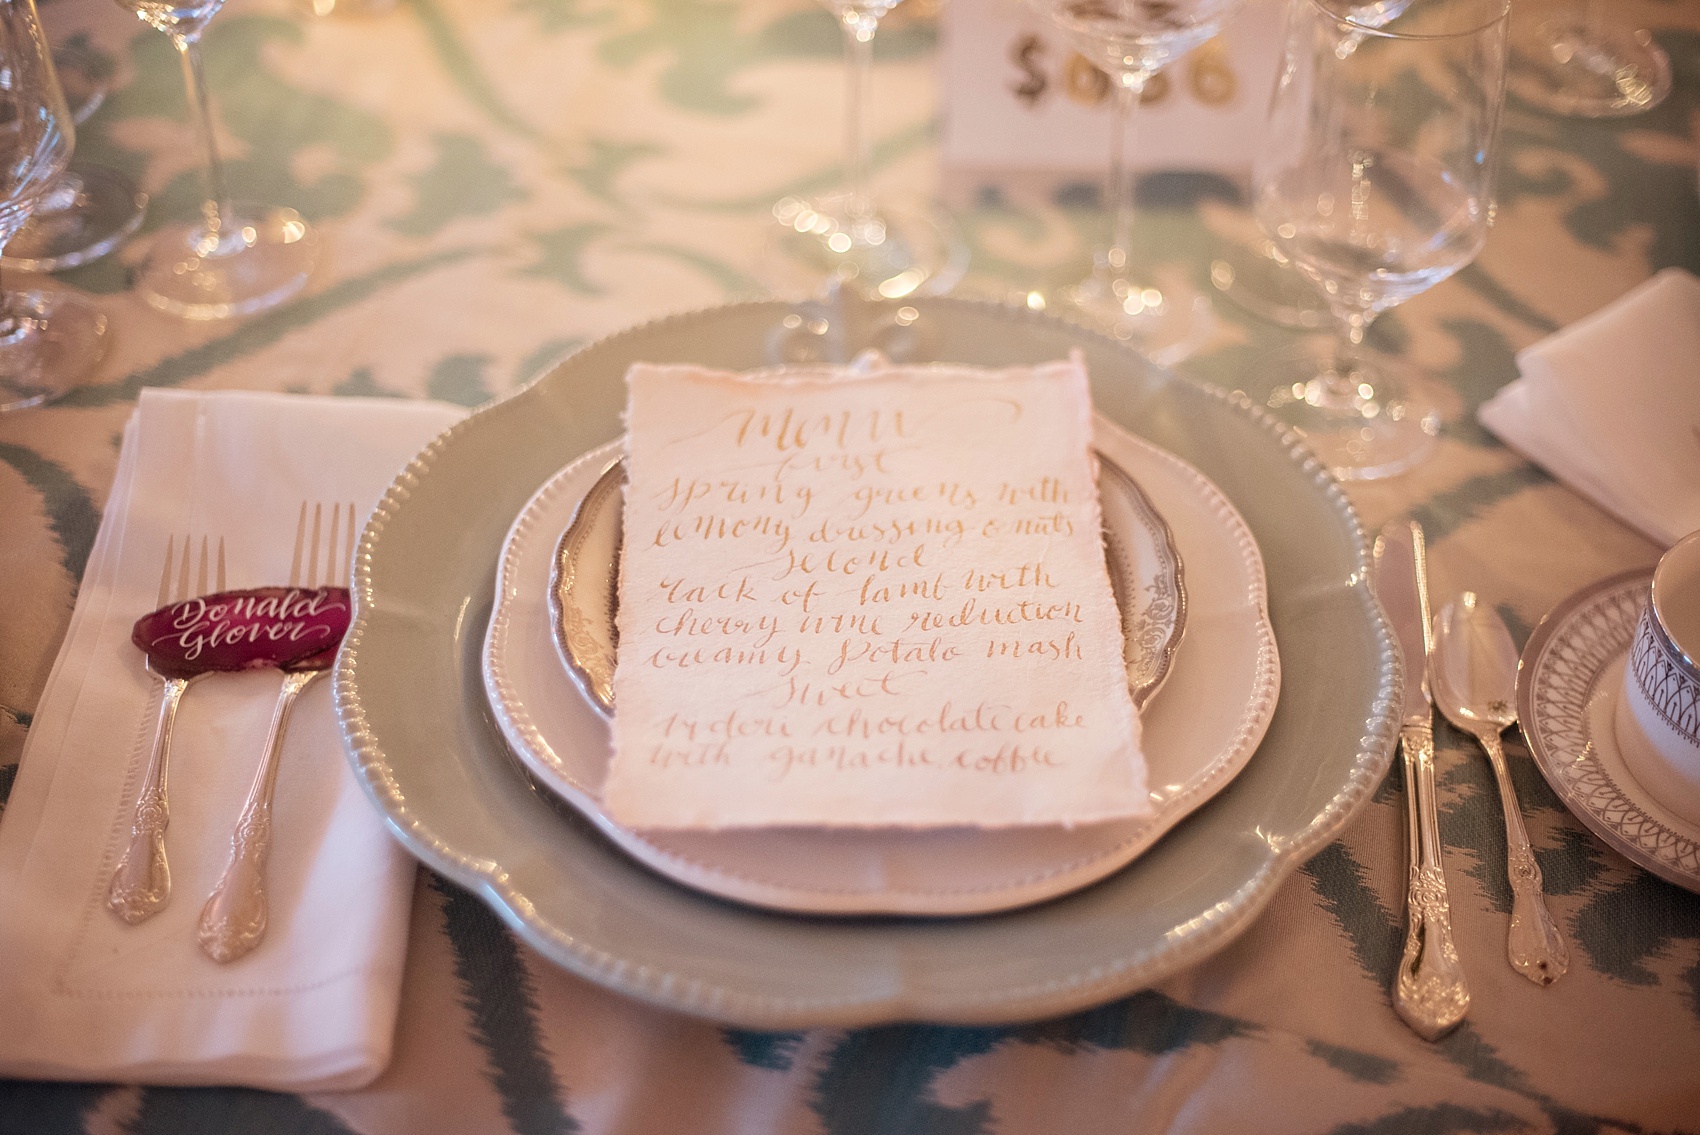 $656
Menu
first
spring greens with
lemony dressing & nuts
second
rack of lamb with
cherry wine reduction
creamy potato mash
sweet
chocolate cake
with ganache coffee
Donald
Glover